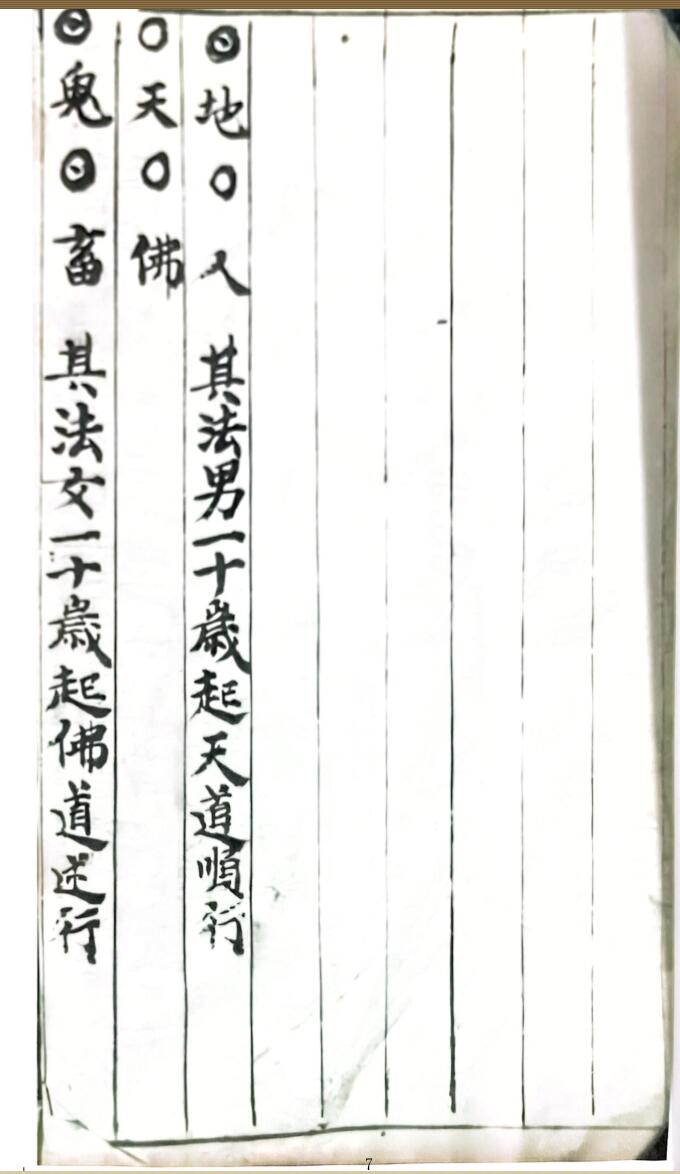 ◎地○人 其法男一十歲起天道順行
○天○佛
◎鬼◎畜 其法女一十歲起佛道逆行
7